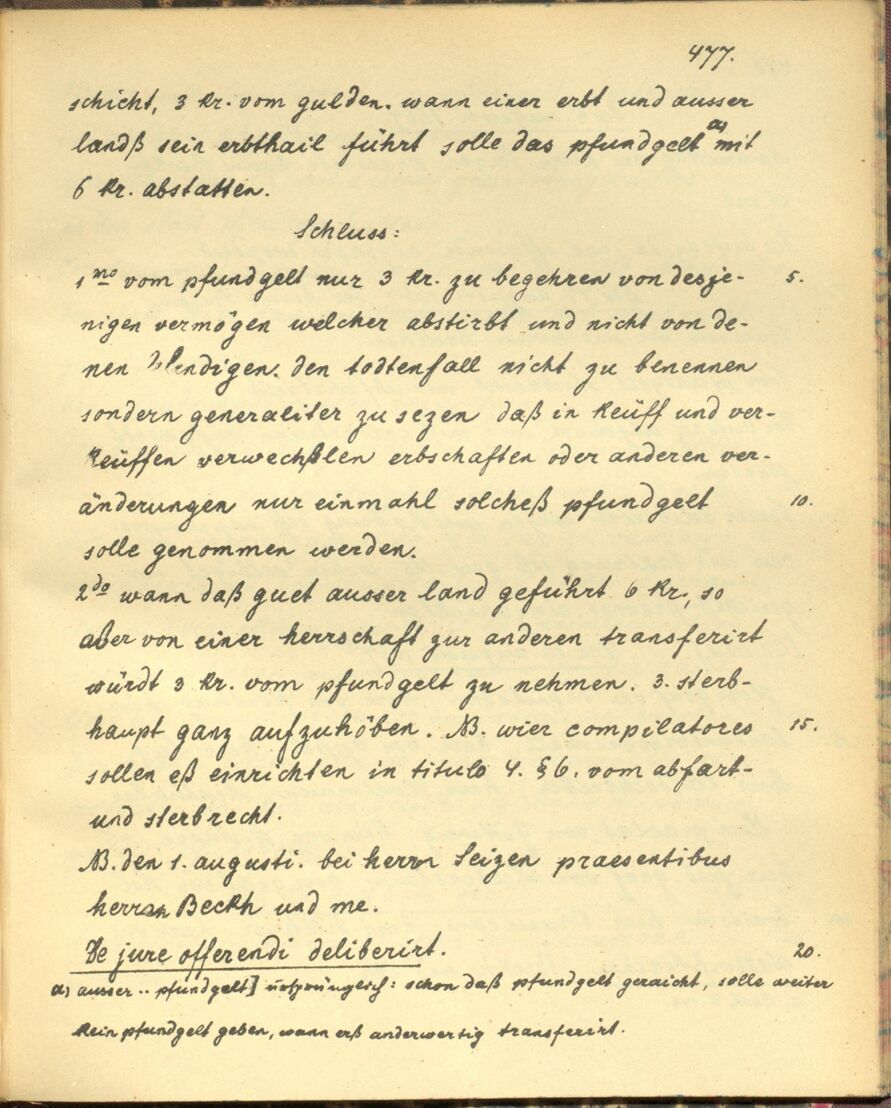 477.
schicht, 3 kr. vom gulden. wann einer erbt und ausser
landß sein erbthail führt solle das pfundgelt a) mit
6 kr. abstatten.
Schluss:
1mo vom pfundgelt nur 3 kr. zu begehren von desje- 5.
nigen vermögen welcher abstirbt und nicht von de-
nen lebendigen. den todtenfall nicht zu benennen
sondern generaliter zu sezen daß in keüff und ver-
keüffen verwechßlen erbschaften oder anderen ver-
änderungen nur einmahl solcheß pfundgelt 10.
solle genommen werden.
2do wann daß guet ausser land geführt 6 kr., so
aber von einer herrschaft zur anderen transferirt
würdt 3 kr. vom pfundgelt zu nehmen. 3. sterb-
haupt ganz aufzuhöben. NB. wier compilatores 15.
sollen eß einrichten in titulo 4. § 6. vom abfart-
und sterbrecht.
NB. den 1. augusti. bei herrn Seizen praesentibus
herrn Beckh und me.
De jure offerendi deliberirt. 20.
a) ausser .. pfundgelt] ursprünglich: schon daß pfundgelt geraicht, solle weiter
kein pfundgelt geben, wann erß anderwertig transferirt.